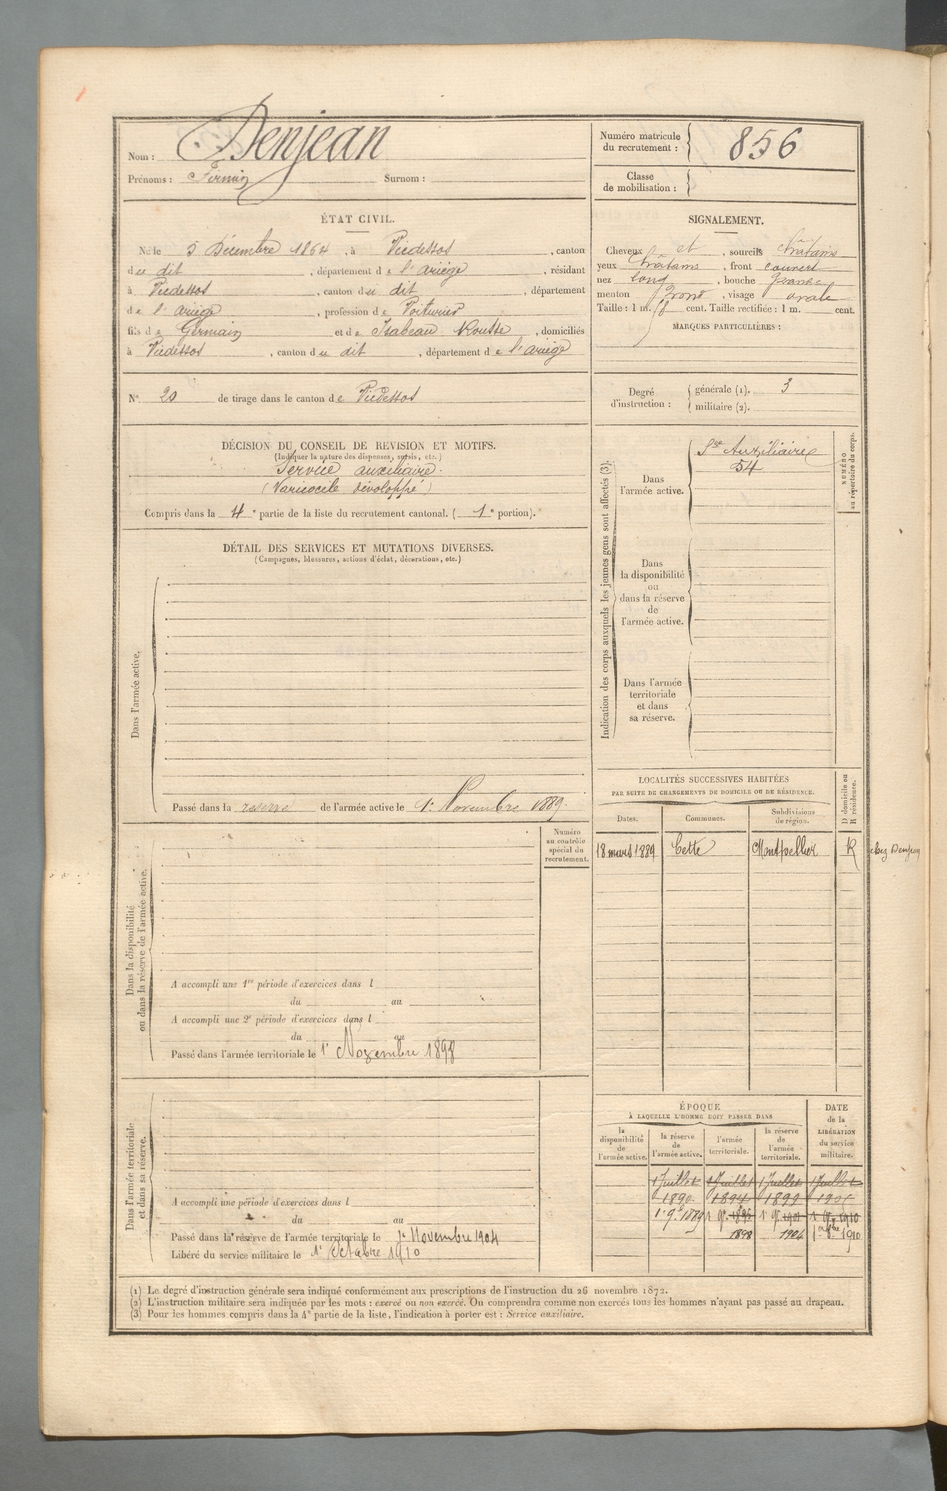 Nom : Denjean
Prénoms : Firmin Surnom :
Numéro matricule du recrutement : 856
Classe de mobilisation :
ÉTAT CIVIL.
Né le 5 Décembre 1864, à Vicdessos, canton
du dit, département de l'ariège, résidant
à Vicdessos, canton du dit, département
de l'ariège, profession de Voiturier
fils de Germain et de Isabeau Rousse, domiciliés
à Vicdessos, canton du dit, département de l'ariège
N° 20 de tirage dans le canton de Vicdessos
SIGNALEMENT.
Cheveux et, sourcils châtains
yeux châtains, front couvert
nez long, bouche grande
menton rond, visage ovale
Taille : 1 m. cent. Taille rectifiée : 1 m. cent.
MARQUES PARTICULIÈRES :
Degré d'instruction : générale (1). 3
militaire (2).
DÉCISION DU CONSEIL DE REVISION ET MOTIFS.
(Indiquer la nature des dispenses, sursis, etc.)
Service auxiliaire.
(Varicocèle développé)
Compris dans la 4e partie de la liste du recrutement cantonal. (1e portion).
DÉTAIL DES SERVICES ET MUTATIONS DIVERSES.
(Campagnes, blessures, actions d'éclat, décorations, etc.)
Dans l'armée active.
Passé dans la réserve de l'armée active le 1er Novembre 1889.
Indication des corps auxquels les jeunes gens sont affectés (3).
NUMÉRO au répertoire du corps.
Dans l'armée active.
Sce Auxiliaire
54
Dans
la disponibilité
ou
dans la réserve
de
l'armée active.
Dans l'armée
territoriale
et dans
sa réserve.
LOCALITÉS SUCCESSIVES HABITÉES
PAR SUITE DE CHANGEMENTS DE DOMICILE OU DE RÉSIDENCE.
Dates. Communes. Subdivisions de région. D domicile ou R résidence.
18 mars 1889 Cette Montpellier R chez Denjean
Numéro
au contrôle
spécial du
recrutement.
Dans la disponibilité
ou dans la réserve de l'armée active.
A accompli une 1re période d'exercices dans l
du au
A accompli une 2e période d'exercices dans l
du au
Passé dans l'armée territoriale le 1er Novembre 1898
Dans l'armée territoriale
et dans sa réserve.
A accompli une période d'exercices dans l
du au
Passé dans la réserve de l'armée territoriale le 1er Novembre 1904
Libéré du service militaire le 1er Octobre 1910
ÉPOQUE
À LAQUELLE L'HOMME DOIT PASSER DANS
DATE de la LIBÉRATION du service militaire.
la disponibilité de l'armée active. la réserve de l'armée active. l'armée territoriale. la réserve de l'armée territoriale.
1 Juillet 1 Juillet 1 Juillet 1 Juillet
1890 1894 1899
1er 9e 1889
1898 1904 1910
(1) Le degré d'instruction générale sera indiqué conformément aux prescriptions de l'instruction du 26 novembre 1872.
(2) L'instruction militaire sera indiquée par les mots : exercé ou non exercé. On comprendra comme non exercés tous les hommes n'ayant pas passé au drapeau.
(3) Pour les hommes compris dans la 4e partie de la liste, l'indication à porter est : Service auxiliaire.